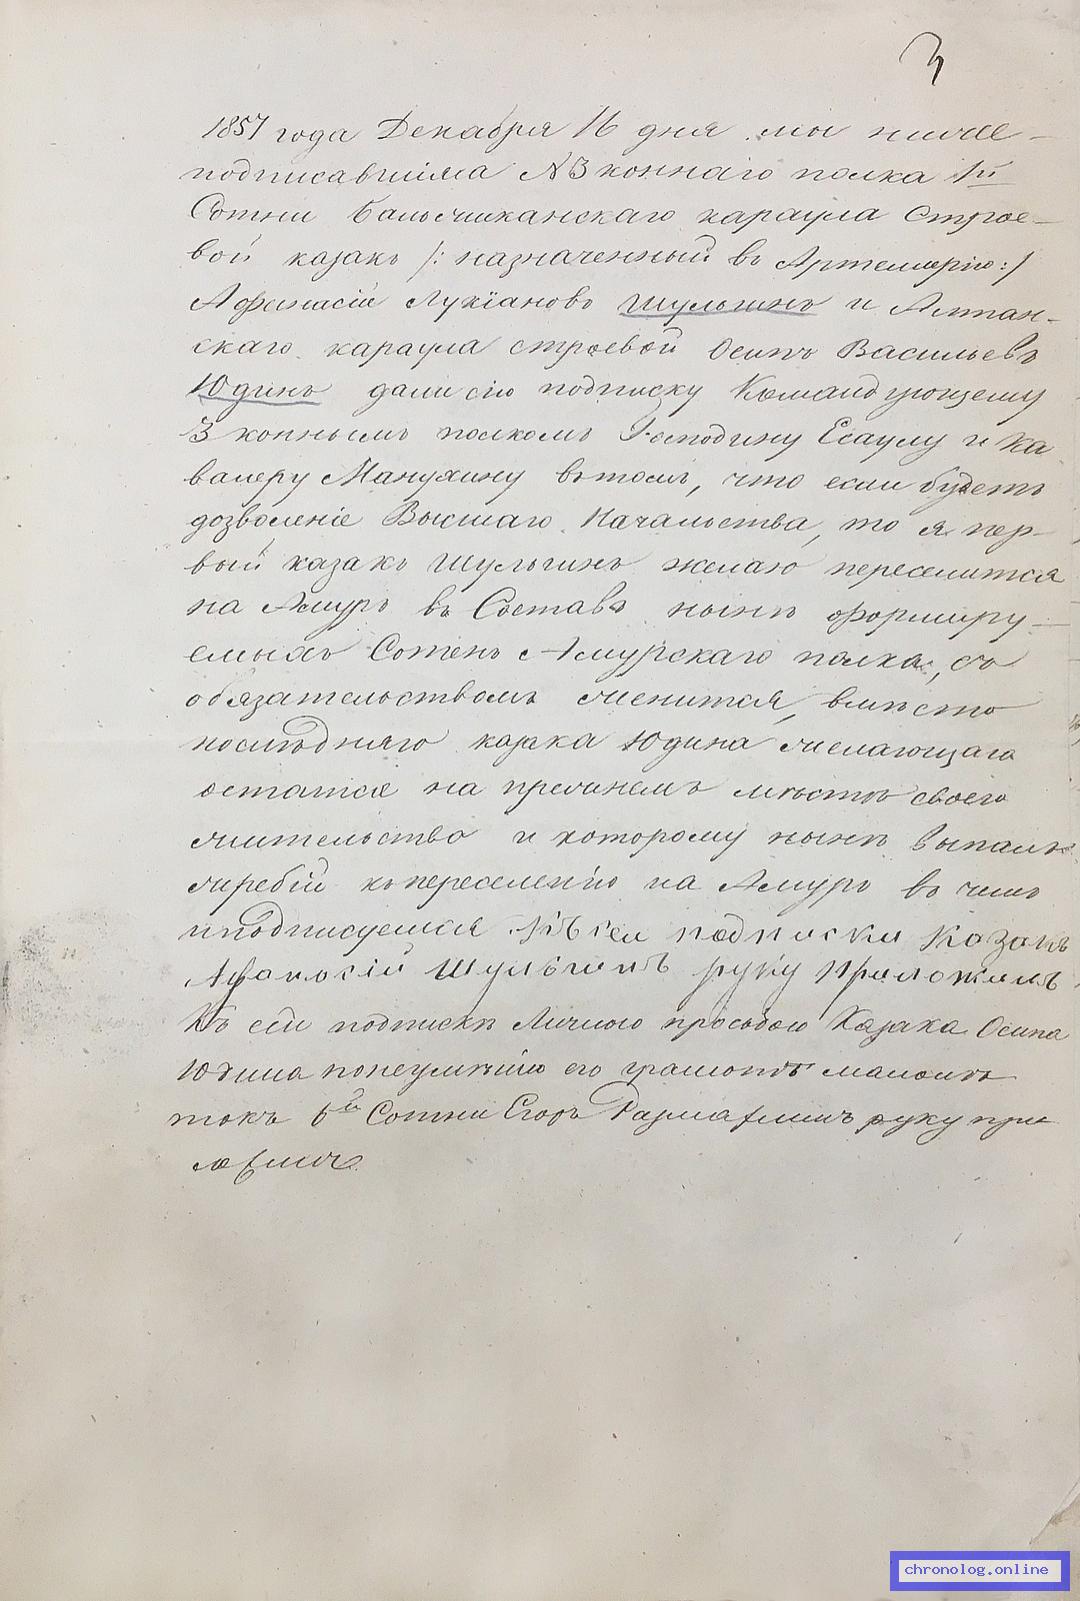 3
1857 года Декабря 16 дня мы ниже-
подписавшіяся № 3 коннаго полка 1й
Сотни Бальжиканскаго караула строе-
вой казакъ /: назначенный въ Артемерію:/
Афанасій Лукіановъ Шульгинъ и Алтан-
скаго караула строевой Осипъ Васильевъ
Юдинъ дали сію подписку Командующему
3 коннымъ полкомъ Господину Есаулу и Ка
валеру Манухину въ томъ, что если будетъ
дозволеніе Высшаго Начальства, то я пер-
вый казакъ Шульгинъ желаю переселится
на Амуръ въ Составъ нынѣ формиру-
емыхъ Сотень Амурскаго полка, съ
обязательствомъ женится, вмѣсто
послѣдняго казака Юдина желающаго
остатся на прежнемъ мѣстѣ своего
жительство и которому нынѣ выпалъ
жребій къ переселенію на Амуръ въ чемъ
и подписуемся Къ сеи подписки Казакъ
Афанасій Шульгинъ руку приложилъ
Къ сей подпискѣ Личною прозьбою Казака Осипа
Юдина по неумѣнію его грамотѣ малолѣ
токъ 6й Сотни Егоръ руку при
ложилъ
chronolog.online